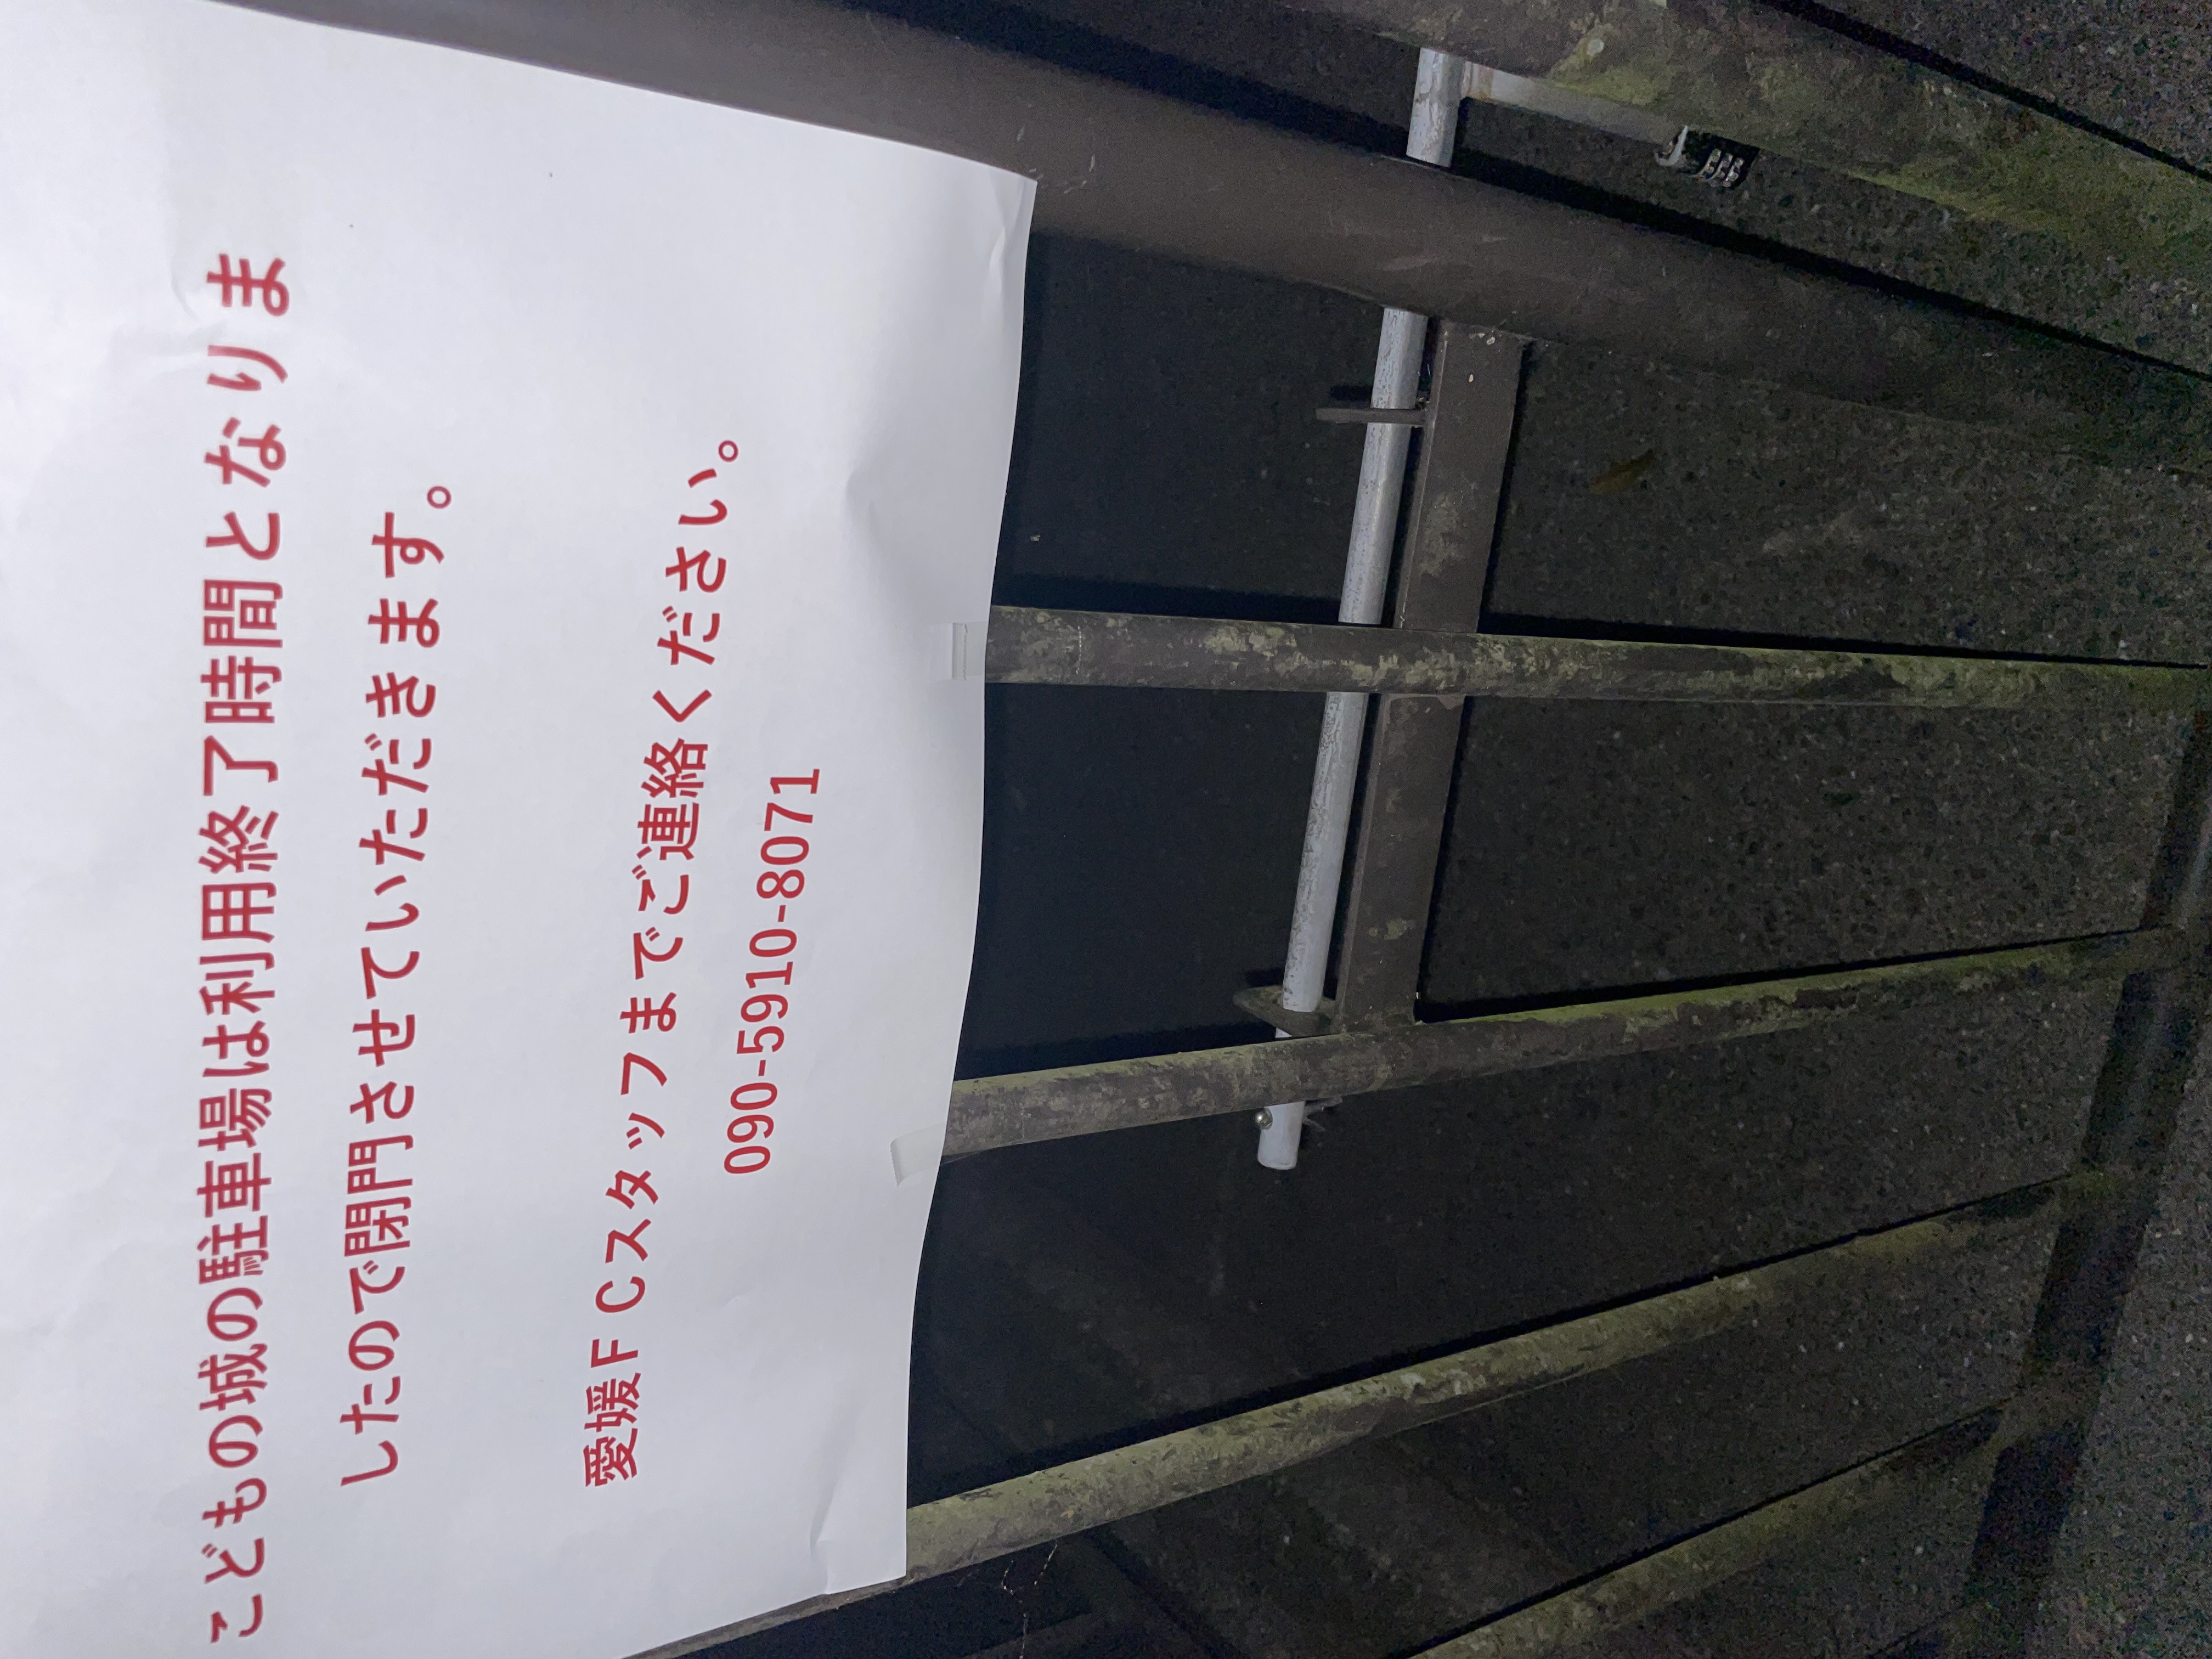 こどもの城の駐車場は利用終了時間となりま
したので閉門させていただきます。
愛媛ＦＣスタッフまでご連絡ください。
090-5910-8071